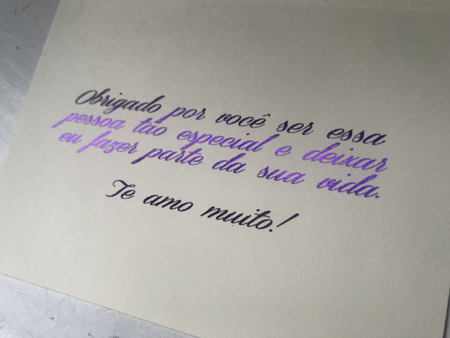 Obrigado por você ser essa
pessoa tão especial e deixar
eu fazer parte da sua vida.
Te amo muito!